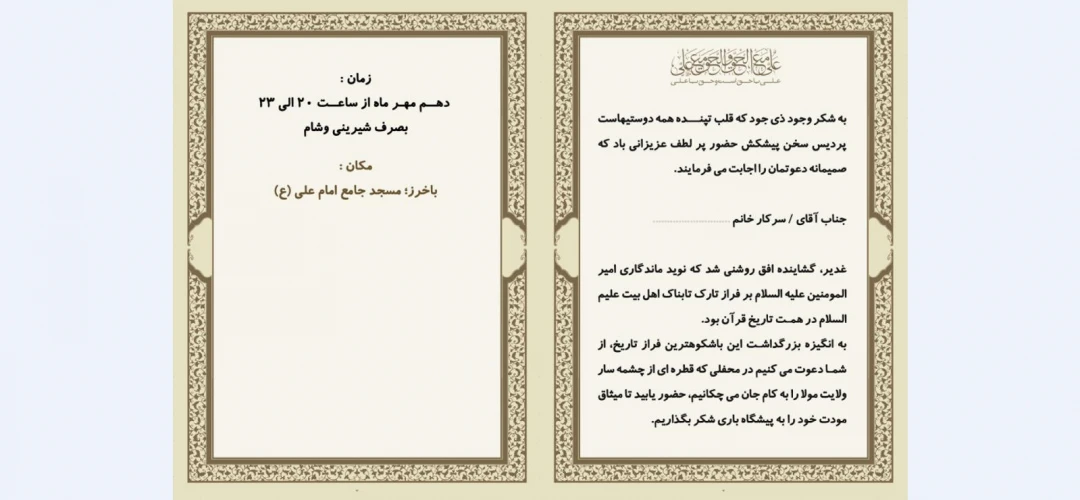 علی مع الحق والحق مع علی
علی با حق است و حق با علی
به شکر وجود ذی جود که قلب تپنده همه دوستیهاست
پردیس سخن پیشکش حضور پر لطف عزیزانی باد که
صمیمانه دعوتمان را اجابت می فرمایند.
جناب آقای / سرکار خانم ..............................
غدیر، گشاینده افق روشنی شد که نوید ماندگاری امیر
المومنین علیه السلام بر فراز تارک تابناک اهل بیت علیم
السلام در همت تاریخ قرآن بود.
به انگیزه بزرگداشت این باشکوهترین فراز تاریخ، از
شما دعوت می کنیم در محفلی که قطره ای از چشمه سار
ولایت مولا را به کام جان می چکانیم، حضور یابید تا میثاق
مودت خود را به پیشگاه باری شکر بگذاریم.
زمان :
دهم مهر ماه از ساعت ۲۰ الی ۲۳
بصرف شیرینی وشام
مکان :
باخرز؛ مسجد جامع امام علی (ع)